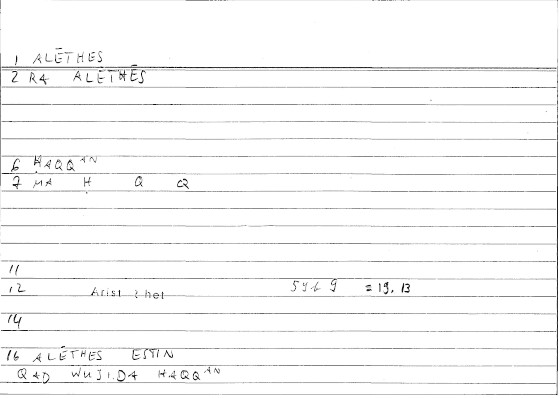 1 ALĒTHES
2 RA ALĒTHĒS
6 ḤAQQ AN
7 MA Ḥ Q Q
11
12 Arist Rhet = 19, 13
14
16 ALĒTHES ESTIN
QAD WUJIDA HAQQ AN